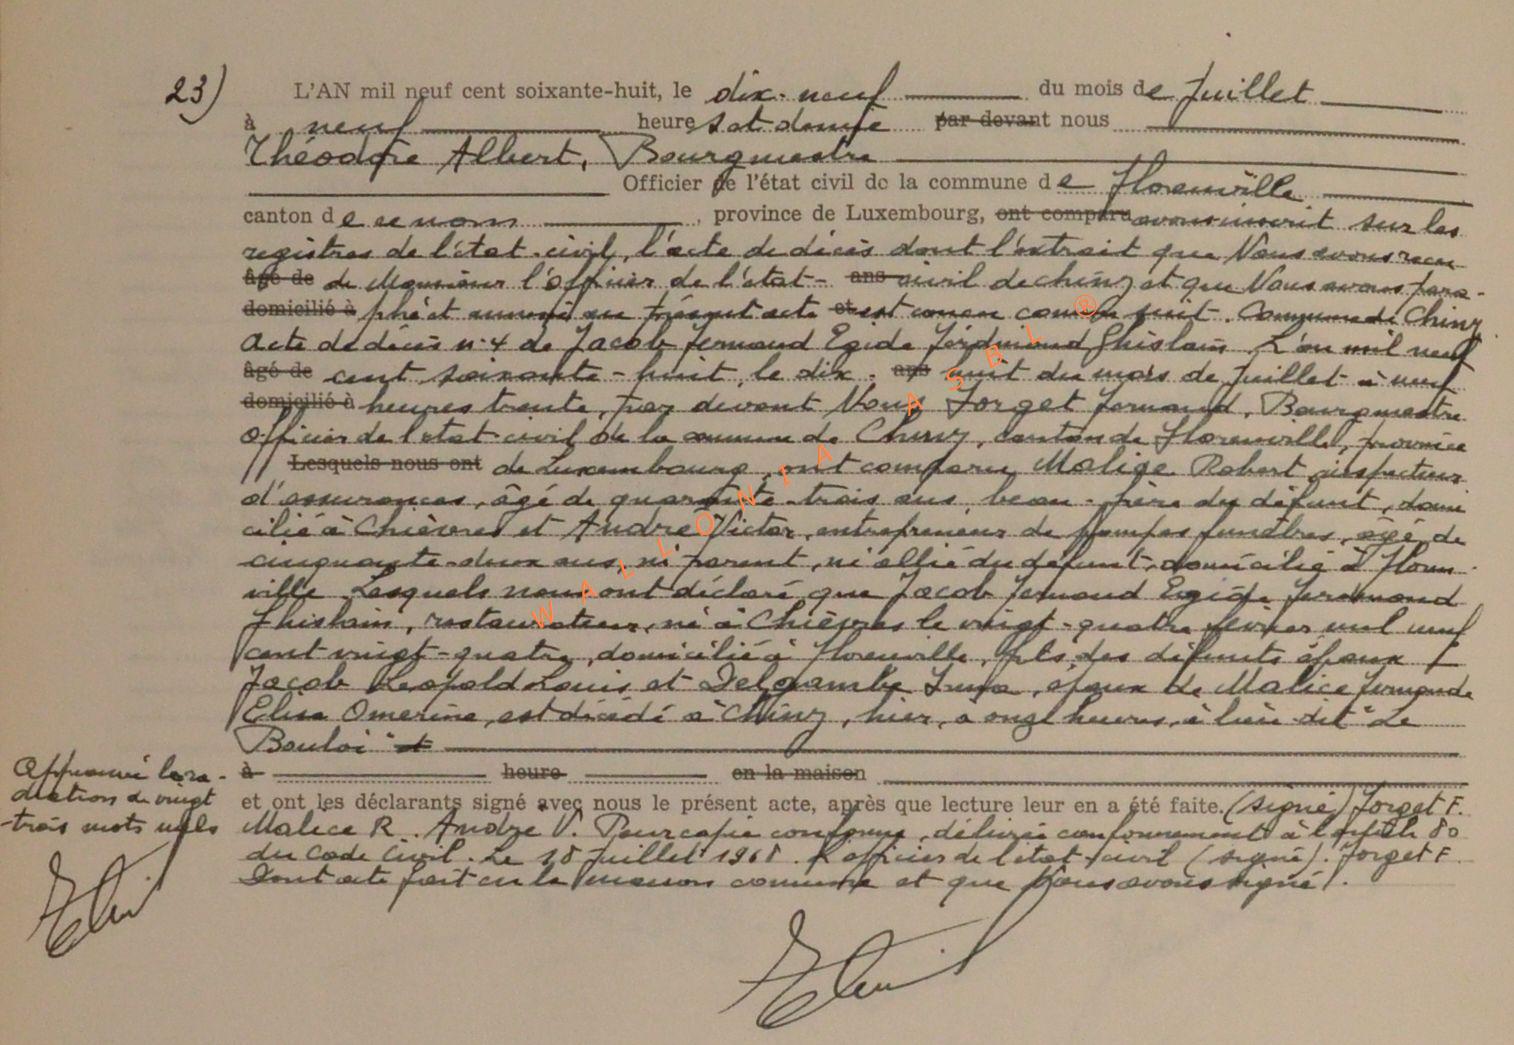 23) L'AN mil neuf cent soixante-huit, le dix-neuf du mois de Juillet
à neuf heures et demie par devant nous
Théodore Albert, Bourgmestre
Officier de l'état civil de la commune de Florenville
canton de ce nom, province de Luxembourg, ont comparu avons inscrit sur les
registres de l'état-civil, l'acte de décès dont l'extrait que Nous avons reçu
âgé de de Monsieur l'Officier de l'état- ans civil de Chiny et que Nous avons para-
domicilié à phé et annexé au présent acte et est conçu comme suit. Commune de Chiny
Acte de décès n° 4 de Jacob Fernand Egide Ferdinand Ghislain L'an mil neuf
âgé de cent soixante-huit, le dix- ans huit du mois de Juillet à neuf
domicilié à heures trente, par devant Nous Forget Fernand, Bourgmestre
Officier de l'état-civil de la commune de Chiny, canton de Florenville, province
Lesquels nous ont de Luxembourg, ont comparu Malice Robert, inspecteur
d'assurances, âgé de quarante-trois ans, beau-frère du défunt, domi
cilié à Chièvres et Andre Victor, entrepreneur de pompes funèbres, âgé de
cinquante-deux ans, ni parent, ni allié du défunt, domicilié à Floren-
ville. Lesquels nous ont déclaré que Jacob Fernand Egide Ferdinand
Ghislain, restaurateur, né à Chièvres le vingt-quatre février mil neuf
cent vingt-quatre, domicilié à Florenville, fils des défunts époux
Jacob Léopold Louis et Delgambe Irma, époux de Malice Fernande
Elisa Omerine, est décédé à Chiny, hier, à onze heures, à lieu-dit "Le
Bouloi" et
à heure en la maison
et ont les déclarants signé avec nous le présent acte, après que lecture leur en a été faite. (signé) Forget F.
Malice R. Andre V. Pour copie conforme, délivrée conformément à l'article 80
du Code Civil. Le 18 Juillet 1968. L'officier de l'état-civil (signé). Forget F.
Dont acte fait en la maison commune et que Nous avons signé.
Approuvé la ra-
diation de vingt
-trois mots nuls
WALLONIA ASBL ®